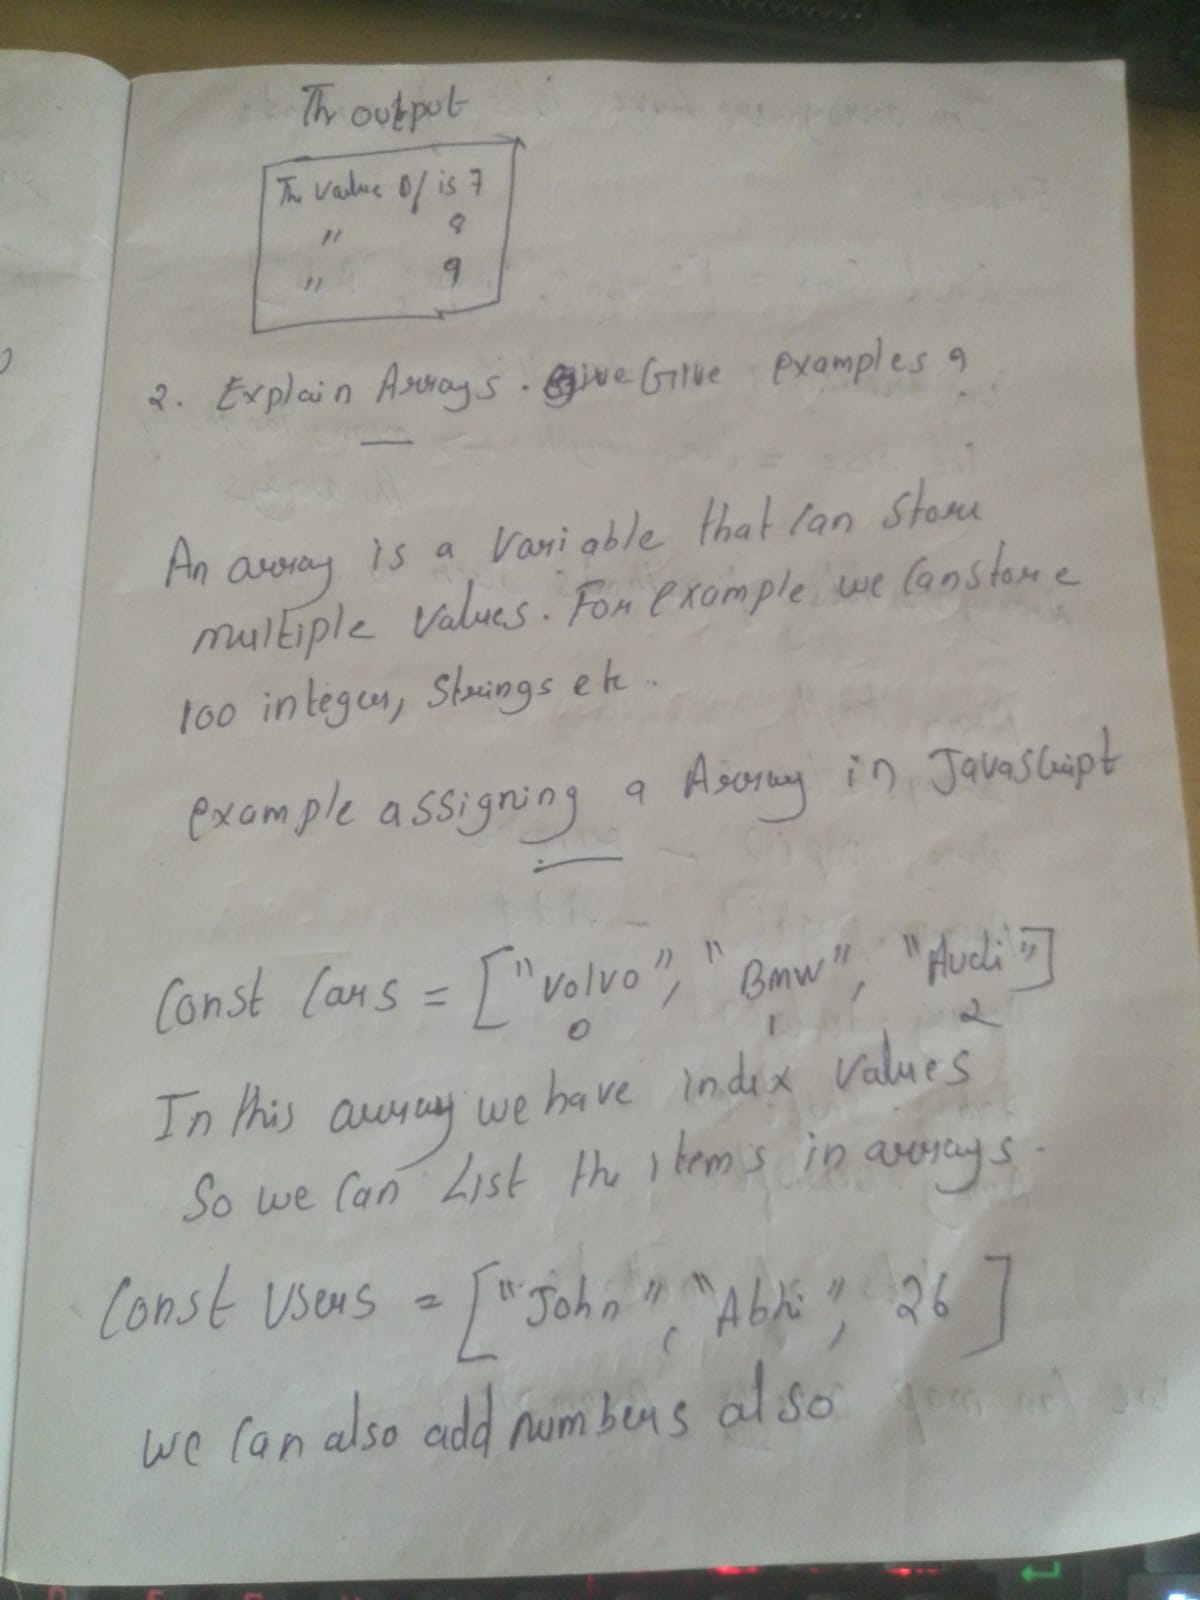 Th output
Th value of is 7
" 8
" 9
2. Explain Arrays. give Give examples ?
An array is a variable that can store
multiple values. For example we can store
100 integers, Strings etc..
example assigning a Array in Javascript
Const Cars = ["Volvo", "Bmw", "Audi"]
0 1 2
In this array we have index values
So we can List the items in arrays.
Const Users = ["John", "Abhi", 26]
we can also add numbers also